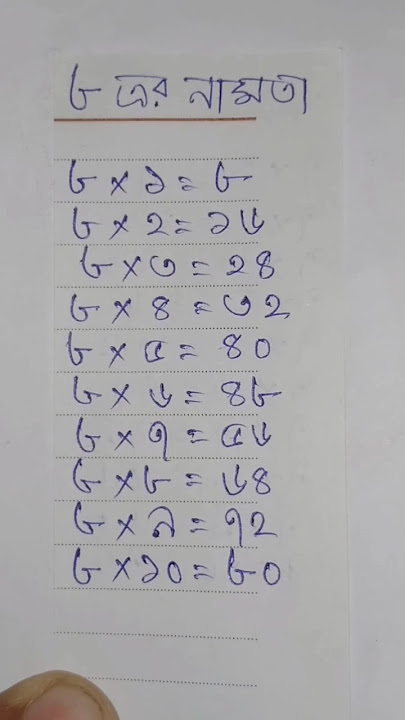 ৮ এর নামতা
৮ × ১ = ৮
৮ × ২ = ১৬
৮ × ৩ = ২৪
৮ × ৪ = ৩২
৮ × ৫ = ৪০
৮ × ৬ = ৪৮
৮ × ৭ = ৫৬
৮ × ৮ = ৬৪
৮ × ৯ = ৭২
৮ × ১০ = ৮০